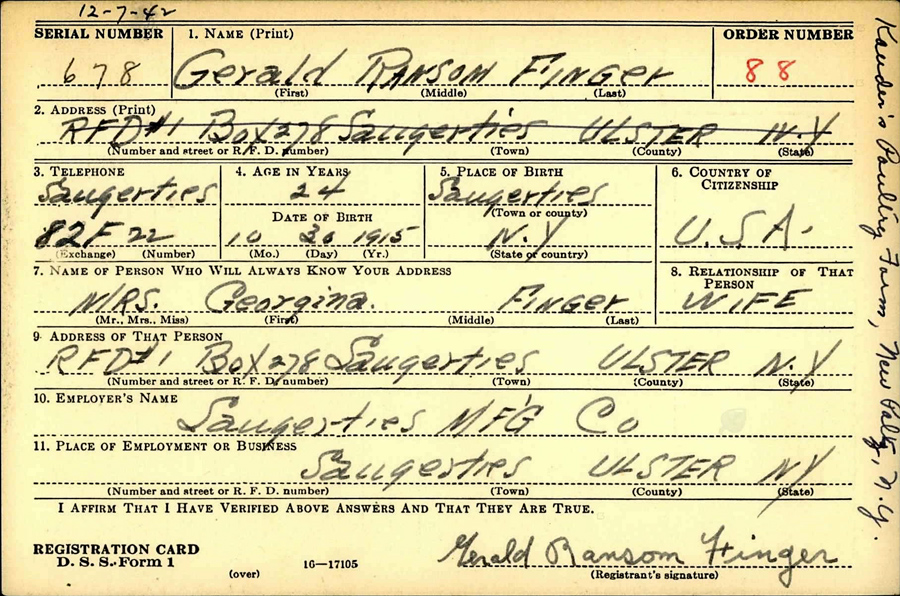 12-7-42
SERIAL NUMBER 1. NAME (Print) ORDER NUMBER
678 Gerald RANSOM FINGER 88
(First) (Middle) (Last)
2. ADDRESS (Print)
RFD#1 Box 278 Saugerties ULSTER N.Y
(Number and street or R. F. D. number) (Town) (County) (State)
3. TELEPHONE 4. AGE IN YEARS 5. PLACE OF BIRTH 6. COUNTRY OF CITIZENSHIP
Saugerties 24 Saugerties
DATE OF BIRTH (Town or county) U.S.A.
82F 22 10 30 1915 N.Y
(Exchange) (Number) (Mo.) (Day) (Yr.) (State or country)
7. NAME OF PERSON WHO WILL ALWAYS KNOW YOUR ADDRESS 8. RELATIONSHIP OF THAT PERSON
MRS. Georgina. FINGER WIFE
(Mr., Mrs., Miss) (First) (Middle) (Last)
9. ADDRESS OF THAT PERSON
RFD#1 Box 278 Saugerties ULSTER N.Y
(Number and street or R. F. D. number) (Town) (County) (State)
10. EMPLOYER'S NAME
Saugerties MF'G Co
11. PLACE OF EMPLOYMENT OR BUSINESS
Saugerties ULSTER NY
(Number and street or R. F. D. number) (Town) (County) (State)
I AFFIRM THAT I HAVE VERIFIED ABOVE ANSWERS AND THAT THEY ARE TRUE.
REGISTRATION CARD
D. S. S. Form 1
(over) 16—17105
Gerald Ransom Finger
(Registrant's signature)
Poultry Farm, New Paltz, N.Y.